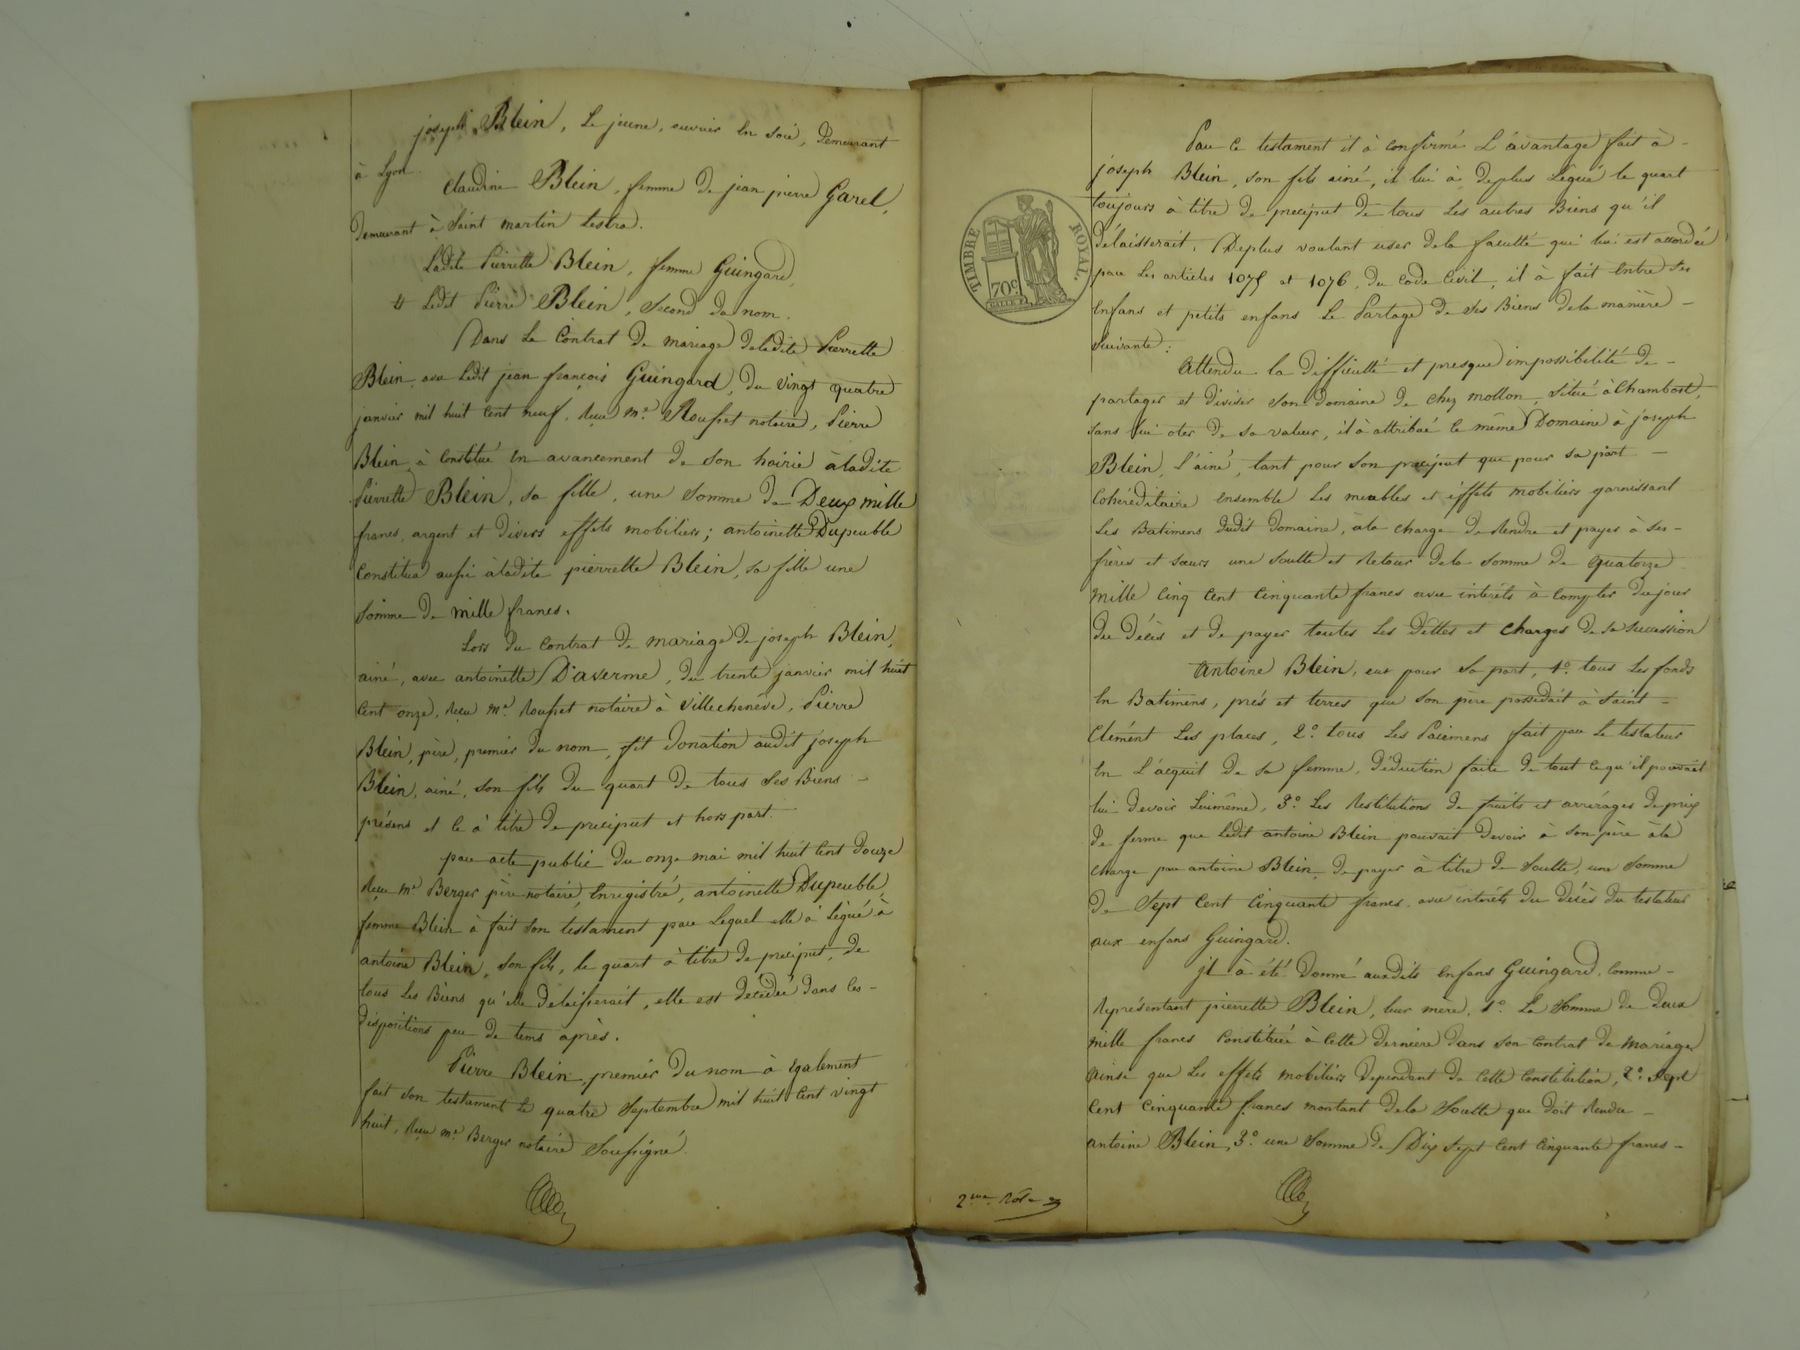 joseph Blein, Le jeune, ouvrier En soie, Demeurant
à Lyon.
Claudine Blein, femme de jean pierre Garel,
Demeurant à Saint martin Lestra.
Ladite Pierrette Blein, femme Guingard,
Et Ledit Pierre Blein, Second du nom.
Dans Le Contrat De mariage deladite Pierrette
Blein, avec Ledit jean françois Guingard, du vingt quatre
janvier mil huit Cent neuf, Reçu me Rousset notaire, Pierre
Blein à Constitué En avancement de Son hoirie àladite
Pierrette Blein, sa fille, une Somme de Deux mille
francs, argent et Divers effets mobiliers; antoinette Dupeuble
Constitua aussi àladite pierrette Blein, sa fille une
Somme De mille francs.
Lors du Contrat De mariage de joseph Blein,
ainé, avec antoinette Daverme, du trente janvier mil huit
Cent onze, Reçu me Rousset notaire à Villechenève, Pierre
Blein, père, premier du nom, fit Donation audit joseph
Blein, ainé, Son fils du quart De tous Ses Biens -
présens et ce à titre de preciput et hors part.
par acte public Du onze mai mil huit Cent Douze
Reçu me Berger père notaire, Enregistré, antoinette Dupeuble,
femme Blein à fait Son testament par Lequel elle à Légué à
antoine Blein, Son fils, le quart à titre de preciput, de
tous Les Biens qu'elle delaisserait, elle est décédée Dans Ces -
dispositions peu de tems après.
Pierre Blein, premier Du nom à Egalement
fait Son testament Le quatre Septembre mil huit Cent vingt
huit, Reçu me Berger notaire Soussigné.
TIMBRE ROYAL.
70c
2me Rôle
Par Ce testament il à confirmé L'avantage fait à -
joseph Blein, Son fils ainé, il lui à Deplus Légué le quart
toujours à titre De preciput De tous Les autres Biens qu'il
délaisserait. Deplus voulant user dela faculté qui lui est accordée
par Les articles 1075 et 1076 du Code Civil, il à fait Entre Ses
Enfans et petits enfans Le Partage De Ses Biens dela manière -
Suivante:
Attendu la Difficulté et presque impossibilité De -
partager et Diviser Son domaine De chez mollon, Situé à Chambost,
Sans lui oter De Sa valeur, il à attribué Le même Domaine à joseph
Blein, L'ainé, tant pour Son preciput que pour Sa part -
Cohéréditaire Ensemble Les meubles et effets mobiliers garnissant
Les Batimens Dudit Domaine, àla charge De Rendre et payer à Ses -
frères et Sœurs une Soulte et Retour Dela Somme De quatorze
mille Cinq Cent Cinquante francs avec intérêts à Compter Du jour
du Décès et De payer toutes Les Dettes et Charges De Sa Succession
Antoine Blein, eut pour Sa part, 1o tous Les fonds
En Batimens, prés et terres que Son père possedait à Saint -
Clément Les places, 2o tous Les Paiemens fait par Le testateur
En L'acquit De Sa femme, déduction faite De tout Ce qu'il pouvait
lui Devoir Luimême, 3o Les Restitutions De fruits et arrérages De prix
De ferme que Ledit antoine Blein pouvait Devoir à Son père àla
charge par antoine Blein, De payer à titre De Soulte, une Somme
De Sept Cent Cinquante francs avec intérêts Du Décès Du testateur
aux enfans Guingard.
jl à été Donné auxdits Enfans Guingard, Comme -
Représentant pierrette Blein, leur mère, 1o La Somme De Deux
mille francs Constituée à Cette Dernière Dans Son Contrat De Mariage
Ainsi que Les effets mobiliers Dépendant De Cette Constitution, 2o Sept
Cent Cinquante francs montant Dela Soulte que doit Rendre -
antoine Blein, 3o une Somme De Dix Sept Cent Cinquante francs -